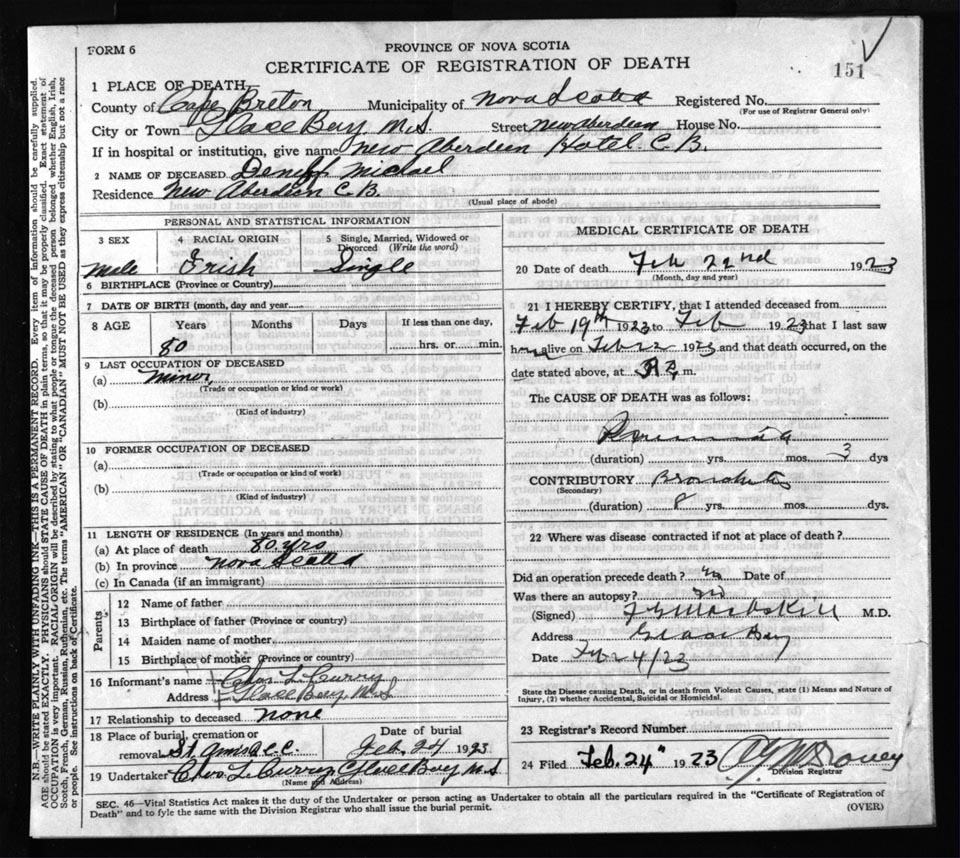 FORM 6
PROVINCE OF NOVA SCOTIA
CERTIFICATE OF REGISTRATION OF DEATH
151
1 PLACE OF DEATH
County of Cape Breton Municipality of Nova Scotia Registered No.
(For use of Registrar General only)
City or Town Glace Bay N.S Street New Aberdeen House No.
If in hospital or institution, give name New Aberdeen Hotel C.B.
2 NAME OF DECEASED Michael
Residence New Aberdeen C.B.
(Usual place of abode)
PERSONAL AND STATISTICAL INFORMATION
3 SEX 4 RACIAL ORIGIN 5 Single, Married, Widowed or Divorced (Write the word)
Male Irish Single
6 BIRTHPLACE (Province or Country)
7 DATE OF BIRTH (month, day and year)
8 AGE Years Months Days If less than one day,
80 hrs. or min.
9 LAST OCCUPATION OF DECEASED
(a) Minor,
(Trade or occupation or kind or work)
(b)
(Kind of industry)
10 FORMER OCCUPATION OF DECEASED
(a)
(Trade or occupation or kind or work)
(b)
(Kind of industry)
11 LENGTH OF RESIDENCE (In years and months)
(a) At place of death 80 yrs
(b) In province Nova Scotia
(c) In Canada (if an immigrant)
Parents
12 Name of father
13 Birthplace of father (Province or country)
14 Maiden name of mother
15 Birthplace of mother (Province or country)
16 Informant's name Chas L. Curry
Address Glace Bay N.S
17 Relationship to deceased none
18 Place of burial, cremation or removal St. Anns R.C.
Date of burial
Feb, 24 1923
19 Undertaker Chas L Curry, Glace Bay N S
(Name and Address)
MEDICAL CERTIFICATE OF DEATH
20 Date of death Feb 22nd 1923
(Month, day and year)
21 I HEREBY CERTIFY, that I attended deceased from
Feb 19th 1923 to Feb 1923 that I last saw
h alive on Feb 22 1923 and that death occurred, on the
date stated above, at m.
The CAUSE OF DEATH was as follows:
Pneumonia
(duration) yrs. mos. 3 dys
CONTRIBUTORY Bronchitis
(Secondary)
(duration) 8 yrs. mos. dys.
22 Where was disease contracted if not at place of death?
Did an operation precede death? no Date of
Was there an autopsy? no
(Signed) M.D.
Address Glace Bay
Date Feb 24/23
State the Disease causing Death, or in death from Violent Causes, state (1) Means and Nature of
Injury, (2) whether Accidental, Suicidal or Homicidal.
23 Registrar's Record Number
24 Filed Feb. 24" 1923
Division Registrar
SEC. 46—Vital Statistics Act makes it the duty of the Undertaker or person acting as Undertaker to obtain all the particulars required in the "Certificate of Registration of
Death" and to fyle the same with the Division Registrar who shall issue the burial permit.
(OVER)
N.B.—WRITE PLAINLY WITH UNFADING INK—THIS IS A PERMANENT RECORD. Every item of information should be carefully supplied.
AGE should be stated EXACTLY. PHYSICIANS should STATE CAUSE OF DEATH in plain terms, so that it may be properly classified. Exact statement of
OCCUPATION is very important. RACIAL ORIGIN will be described by stating to what people or tongue the deceased person belonged whether English, Irish,
Scotch, French, German, Russian, Ruthenian, etc. The terms "AMERICAN" OR "CANADIAN" MUST NOT BE USED as they express citizenship but not a race
or people. See instructions on back of Certificate.